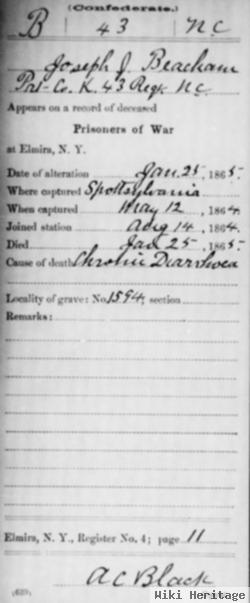 (Confederate.)
B 43 NC
Joseph J. Beacham
Pvt Co. K. 43 Regt. N.C.
Appears on a record of deceased
Prisoners of War
at Elmira, N. Y.
Date of alteration Jan. 25, 1865.
Where captured Spottsylvania
When captured May 12, 1864.
Joined station Aug 14, 1864.
Died Jan 25, 1865.
Cause of death Chronic Diarrhoea
Locality of grave: No. 1594, section
Remarks:
Elmira, N. Y., Register No. 4; page 11
A C Black
(639)
Wiki Heritage